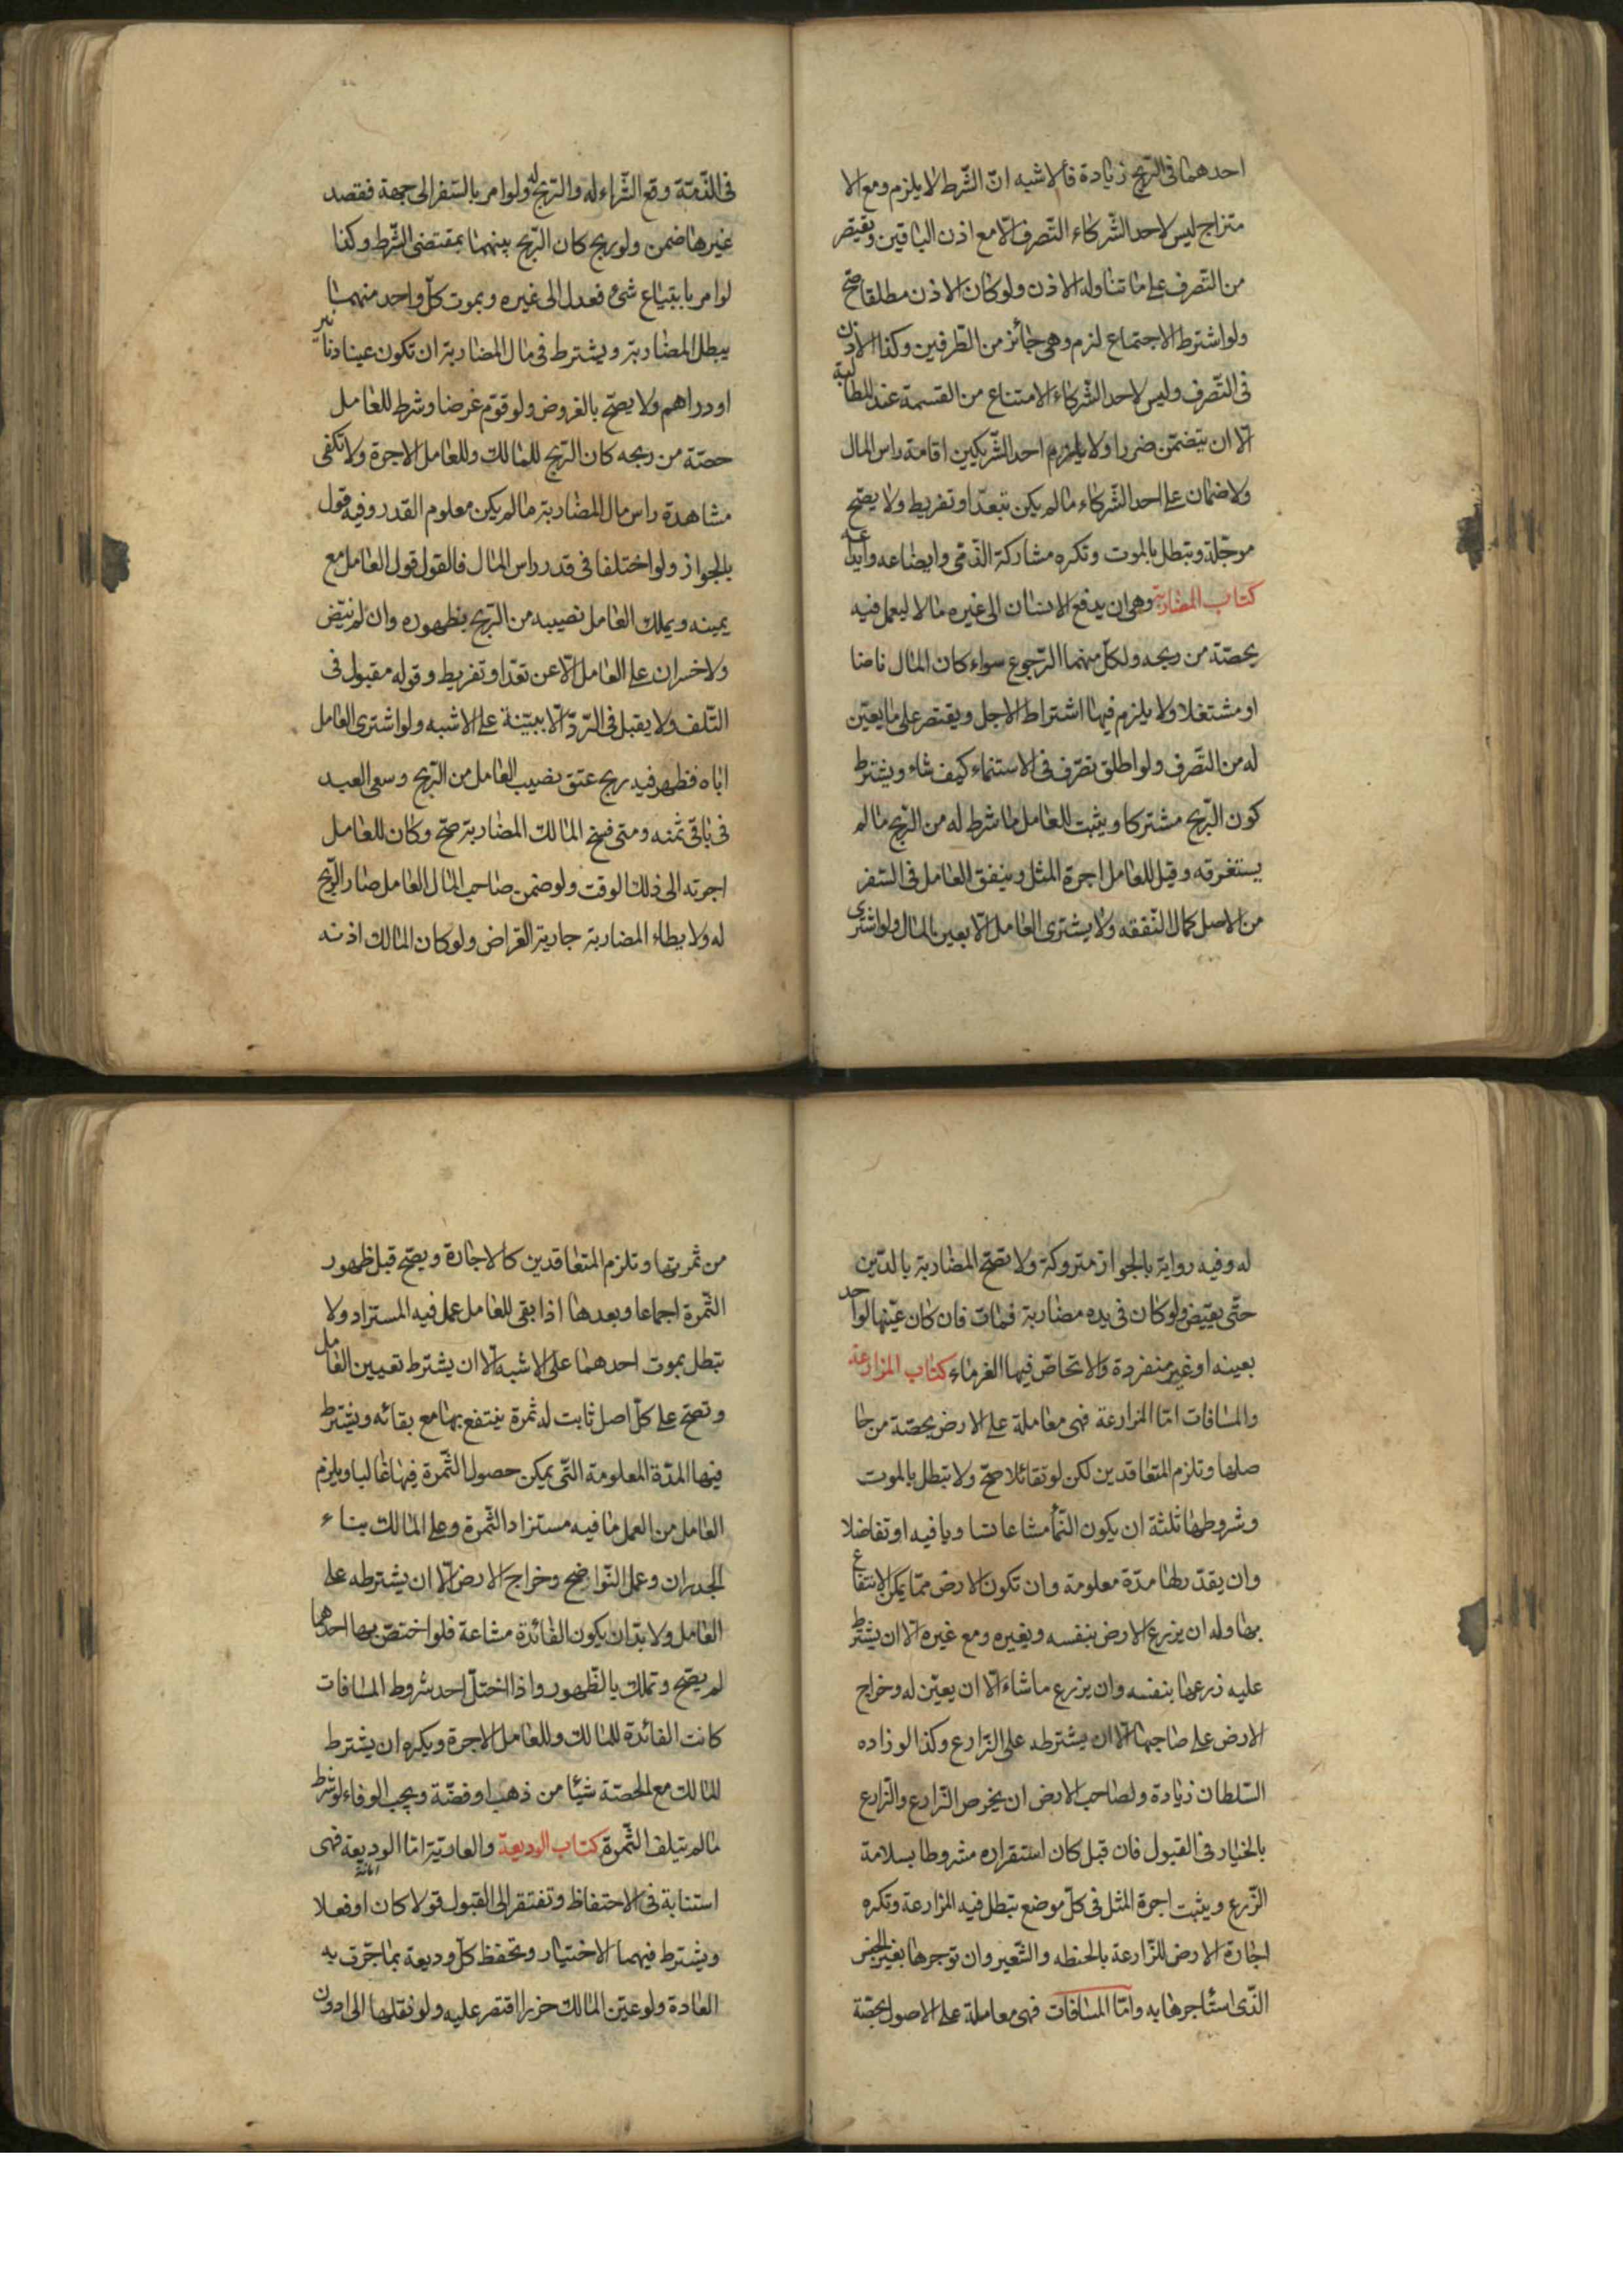 احدهما فى الرّبح زيادة فالاشبه انّ الشّرط لا يلزم ومع الا
متزاج ليس لاحد الشّركاء التّصرف الّا مع اذن الباقين ويقتصر
من التّصرف على ما تناوله الاذن ولو كان الاذن مطلقا صحّ
ولو اشترط الاجتماع لزم وهى جائز من الطّرفين وكذا الاذن
فى التّصرف وليس لاحد الشّركاء الامتناع من القسمة عند المطالبة
الّا ان يتضمّن ضررا ولا يلزم احد الشّريكين اقامة راس المال
ولا ضمان على احد الشّركاء ما لم يكن بتعدّ او تفريط ولا يصحّ
موجّلة وتبطل بالموت وتكره مشاركة الذّمّى وابضاعه وايداعه
كتاب المضاربة وهى ان يدفع الانسان الى غيره مالا ليعمل فيه
بحصّة من ربحه ولكلّ منهما الرّجوع سواء كان المال ناضا
او مشتغلا ولا يلزم فيها اشتراط الاجل ويقتصر على ما يعيّن
له من التّصرف ولو اطلق تصرّف فى الاستنماء كيف شاء ويشترط
كون الرّبح مشتركا ويثبت للعامل ما شرط له من الرّبح ما لم
يستغرقه وقيل للعامل اجرة المثل وينفق العامل فى السّفر
من الاصل كمال النّفقه ولا يشترى العامل الّا بعين المال ولو اشترى
فى الذّمّة وقع الشّراء له والرّبح له ولو امر بالسّفر الى جهة فقصد
غيرها ضمن ولو ربح كان الرّبح بينهما بمقتضى الشّرط وكذا
لو امر بابتياع شىء فعدل الى غيره وبموت كلّ واحد منهما
يبطل المضاربة ويشترط فى مال المضاربة ان تكون عينا دنانير
او دراهم ولا يصحّ بالعروض ولو قوّم عرضا وشرط للعامل
حصّة من ربحه كان الرّبح للمالك وللعامل الاجرة ولا تكفى
مشاهدة راس مال المضاربة ما لم يكن معلوم القدر وفيه قول
بالجواز ولو اختلفا فى قدر راس المال فالقول قول العامل مع
يمينه ويملك العامل نصيبه من الرّبح بظهوره وان لم ينضّ
ولا خسران على العامل الّا عن تعدّ او تفريط وقوله مقبول فى
التّلف ولا يقبل فى الرّدّ الّا ببيّنة على الاشبه ولو اشترى العامل
اباه فظهر فيه ربح عتق نصيب العامل من الرّبح وسعى العبد
فى باقى ثمنه ومتى فسخ المالك المضاربة صحّ وكان للعامل
اجرته الى ذلك الوقت ولو ضمن صاحب المال العامل صار الرّبح
له ولا يطاء المضاربة جارية القراض ولو كان المالك اذنه
له وفيه رواية بالجواز متروكة ولا تصحّ المضاربة بالدّين
حتّى يقبض ولو كان فى يده مضاربة فمات فان كان عيّنها لواحد
بعينه او غير منفردة والا تحاصّ فيها الغرماء كتاب المزارعة
والمساقات امّا المزارعة فهى معاملة على الارض بحصّة من حا
صلها وتلزم المتعاقدين لكن لو تقائلا صحّ ولا تبطل بالموت
وشروطها ثلثة ان يكون النّما مشاعا تساويا فيه او تفاضلا
وان يقدّر لها مدّة معلومة وان تكون الارض ممّا يمكن الانتفاع
بها وله ان يزرع الارض بنفسه وبغيره ومع غيره الّا ان يشترط
عليه زرعها بنفسه وان يزرع ما شاء الّا ان يعيّن له وخراج
الارض على صاحبها الّا ان يشترطه على الزّارع وكذا لو زاده
السّلطان زيادة ولصاحب الارض ان يخرص الزّارع والزّارع
بالخيار فى القبول فان قبل كان استقراره مشروطا بسلامة
الزّرع ويثبت اجرة المثل فى كلّ موضع تبطل فيه المزارعة وتكره
اجارة الارض للزّارعة بالحنطه والشّعير وان توجرها بغير الجنس
الذّى استأجرها به وامّا المساقات فهى معاملة على الاصول بحصّة
من ثمرتها وتلزم المتعاقدين كالاجارة ويصحّ قبل ظهور
الثّمرة اجماعا وبعدها اذا بقى للعامل عمل فيه المستزاد ولا
تبطل بموت احدهما على الاشبه الّا ان يشترط تعيين العامل
وتصحّ على كلّ اصل ثابت له ثمرة ينتفع بها مع بقائه ويشترط
فيها المدّة المعلومة التّى يمكن حصول الثّمرة فيها غالبا ويلزم
العامل من العمل ما فيه مستزاد الثّمرة وعلى المالك بناء
الجدران وعمل النّواضح وخراج الارض الّا ان يشترطه على
العامل ولا بدّ ان يكون الفائدة مشاعة فلو اختصّ بها احدهما
لم يصحّ وتملك بالظّهور واذا اختلّ احد شروط المساقات
كانت الفائدة للمالك وللعامل الاجرة ويكره ان يشترط
للمالك مع الحصّة شيئا من ذهب او فضّة ويجب الوفاء لو شرط
ما لم يتلف الثّمرة كتاب الوديعة والعاريّة امّا الوديعة فهى
امانة
استنابة فى الاحتفاظ وتفتقر الى القبول قولا كان او فعلا
ويشترط فيهما الاختيار وتحفظ كلّ وديعة بما جرت به
العادة ولو عيّن المالك حرزا اقتصر عليه ولو نقلها الى ادون